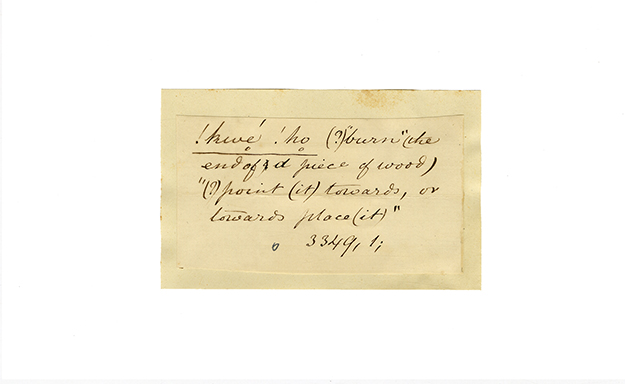 !kwe̥ʹ !ho̥ (?)"burn" (the
end of a piece of wood)
"(?) point (it) towards, or
towards place (it)"
3349, 1;